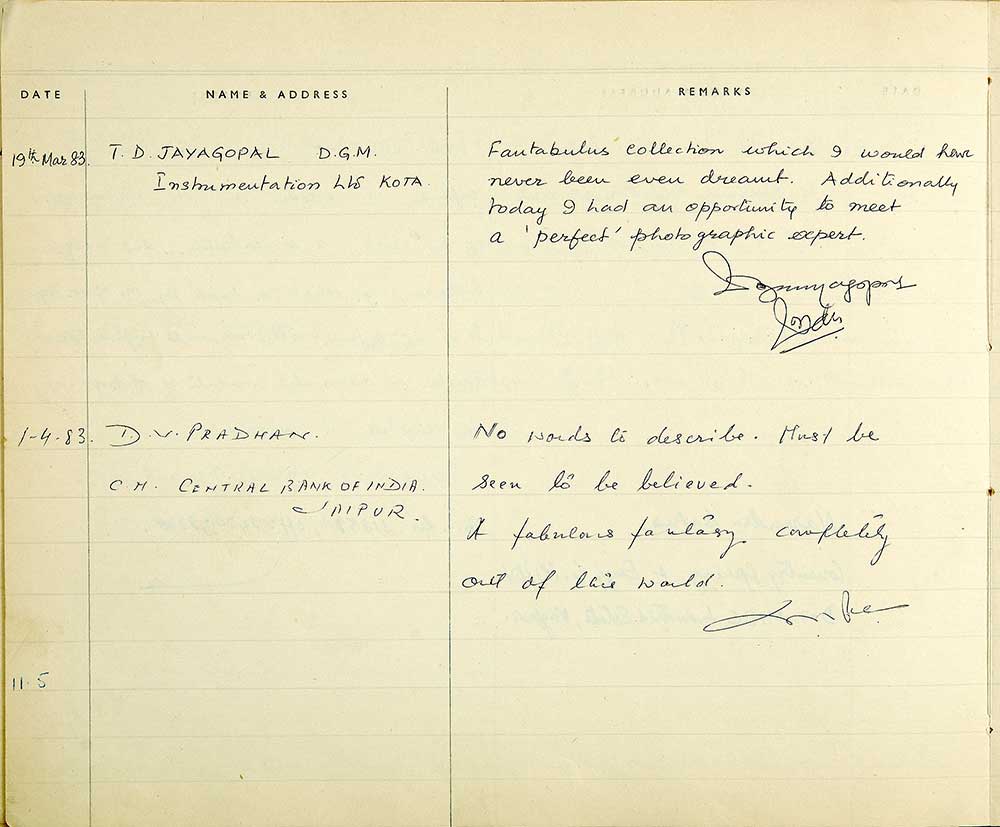 DATE NAME & ADDRESS REMARKS
19th Mar 83. T. D. JAYAGOPAL D.G.M.
Instrumentation Ltd KOTA.
Fantabulus collection which I would have
never been even dreamt. Additionally
today I had an opportunity to meet
a 'perfect' photographic expert.
1-4-83. D. V. PRADHAN.
C.M. CENTRAL BANK OF INDIA.
JAIPUR
No words to describe. Must be
seen to be believed.
A fabulous fantasy completely
out of this world.
11.5